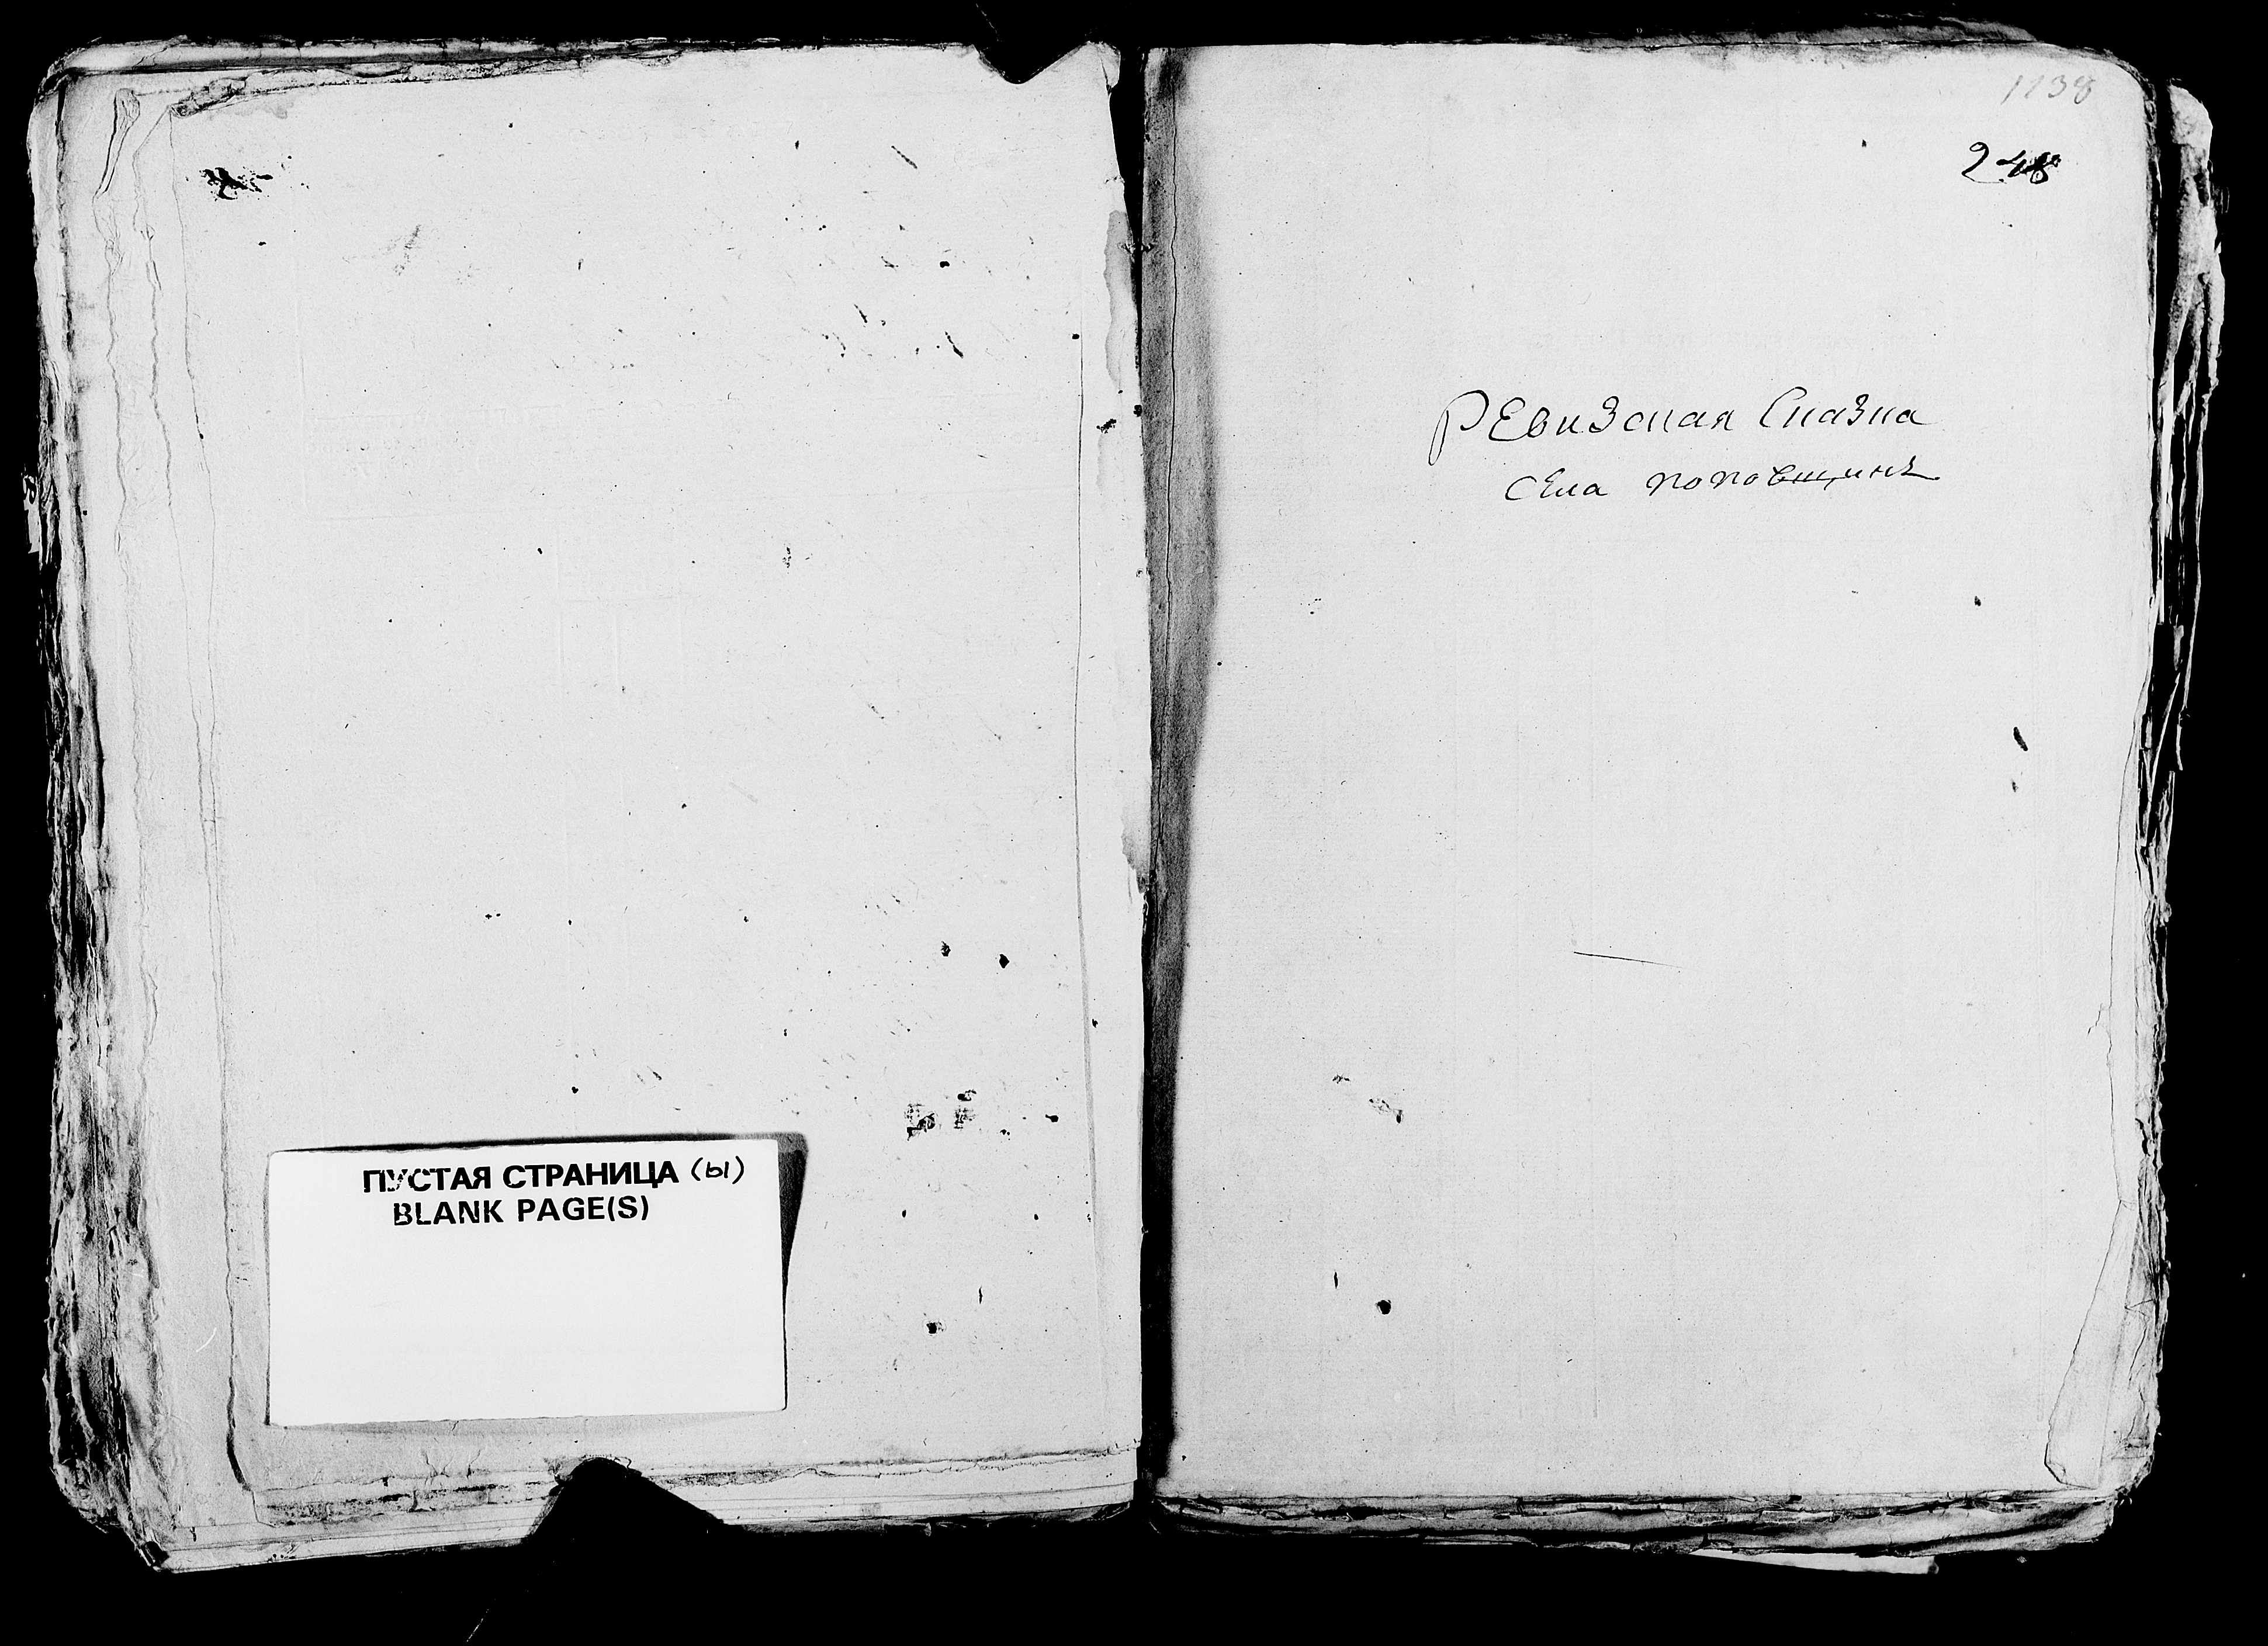 ПУСТАЯ СТРАНИЦА (ы)
BLANK PAGE(S)
1238
248
Ревизская Сказка
села поповщинѣ